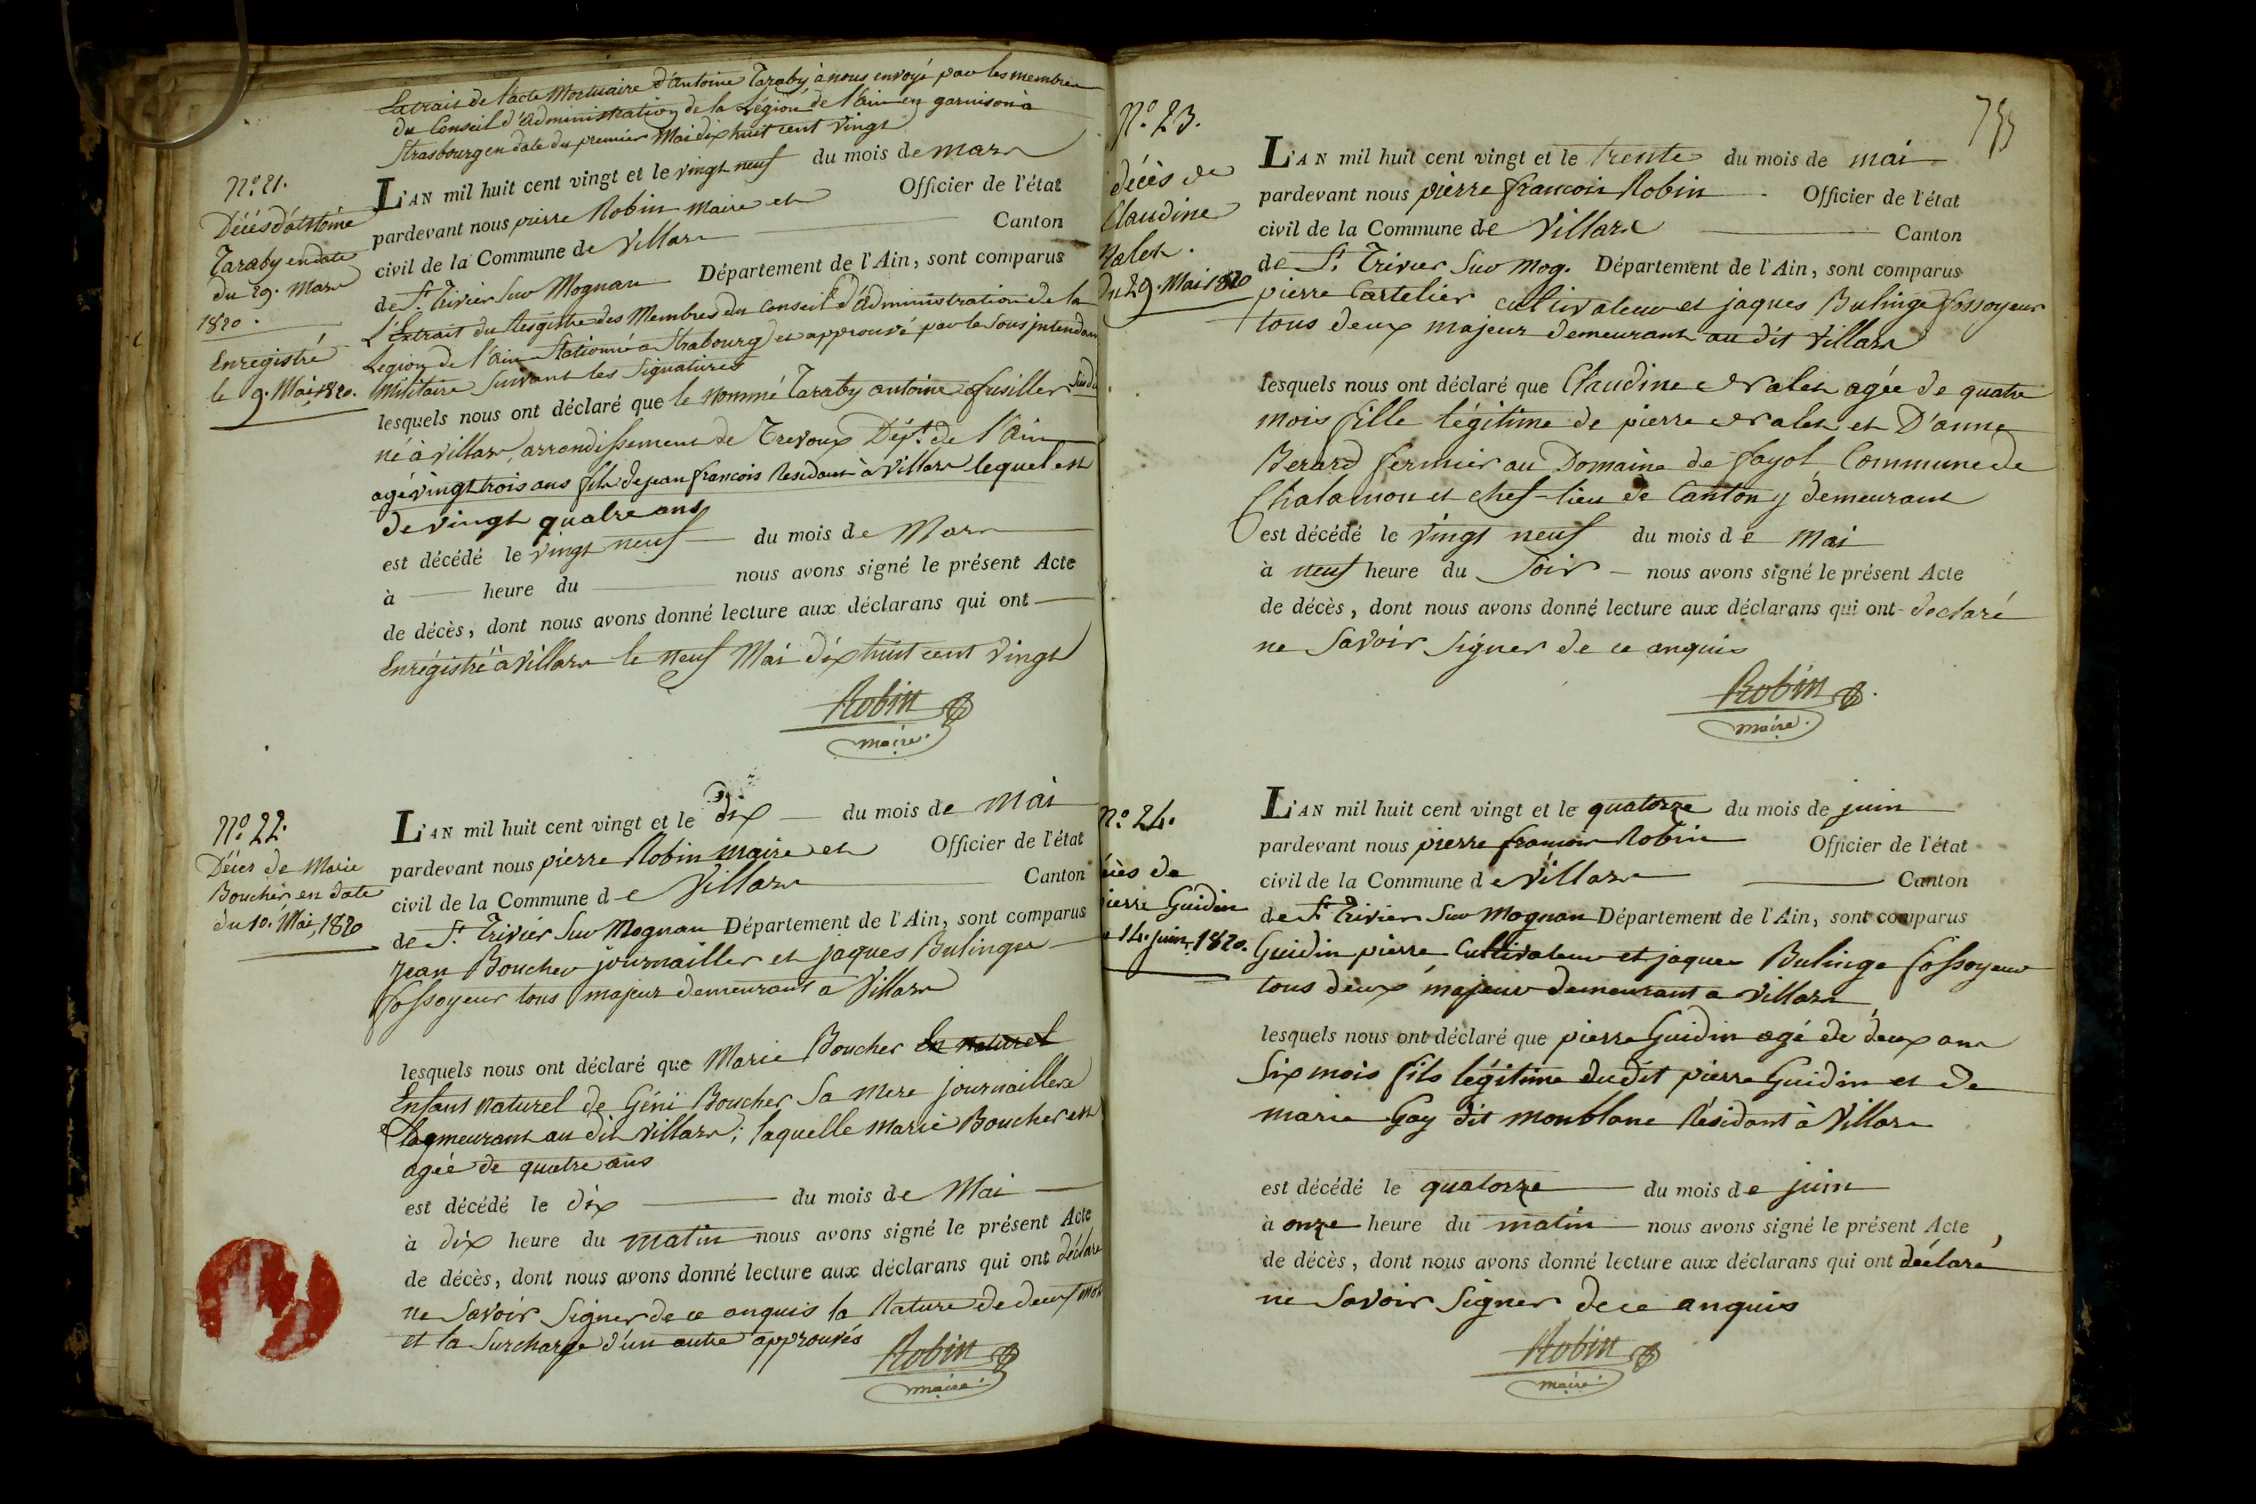 Extrait de l'acte Mortuaire d'antoine Taraby à nous envoyé par les membres
du Conseil d'Administration de la Légion de l'ain en garnison à
Strasbourg en date du premier Mai dix huit cent vingt
N.o 21.
Décès d'antoine
Taraby en date
du 29. Mars
1820.
Enregistré
le 9. Mai 1820.
L'AN mil huit cent vingt et le vingt neuf du mois de mars
pardevant nous pierre Robin maire et Officier de l'état
civil de la Commune de Villars Canton
de St. Trivier Sur Mognan Département de l'Ain, sont comparus
L'Extrait du Resgistre des Membres du Conseil d'Administration de la
Legion de l'ain Stationné a Strabourg et approuvé par le Sous intendant
Militaire Suivant les Signatures
lesquels nous ont déclaré que le nommé Taraby antoine fusiller
né à Villars, arrondissement de Trevoux Dépt. de l'Ain
agé vingt trois ans fils de jean francois Residant à Villars lequel est
de vingt quatre ans
est décédé le vingt neuf du mois de Mars
à heure du nous avons signé le présent Acte
de décès, dont nous avons donné lecture aux déclarans qui ont
Enrégistré à Villars le neuf Mai dix huit cent vingt
Robin
maire.
N.o 22.
Décès de Marie
Boucher, en date
du 10. Mai, 1820
L'AN mil huit cent vingt et le dix du mois de Mai
pardevant nous pierre Robin maire et Officier de l'état
civil de la Commune de Villars Canton
de St. Trivier Sur Mognan Département de l'Ain, sont comparus
Jean Boucher journailler et jaques Bulinge
fossoyeur tous majeur demeurant a Villars
lesquels nous ont déclaré que Marie Boucher En naturel
Enfant naturel de Géni Boucher Sa mere journaillere
demeurant au dit Villars; laquelle marie Boucher est
agée de quatre ans
est décédé le dix du mois de Mai
à dix heure du matin nous avons signé le présent Acte
de décès, dont nous avons donné lecture aux déclarans qui ont déclaré
ne Savoir Signer de ce enquis la Rature de deux mots
et la Surcharge d'un autre approuvés
Robin
maire.
755
N.o 23.
décès de
Claudine
Valet.
du 29. Mai 1820
L'AN mil huit cent vingt et le trente du mois de mai
pardevant nous pierre francois Robin Officier de l'état
civil de la Commune de Villars Canton
de St. Trivier Sur Mog. Département de l'Ain, sont comparus
pierre Cartelier cultivateur et jaques Bulinge fossoyeur
tous deux majeur demeurant au dit Villars
lesquels nous ont déclaré que Claudine Valet agée de quatre
mois fille légitime de pierre Valet et D'anne
Berard fermier au Domaine de fayol Commune de
Chalamon et chef-lieu de Canton y demeurant
est décédé le vingt neuf du mois de Mai
à neuf heure du Soir nous avons signé le présent Acte
de décès, dont nous avons donné lecture aux déclarans qui ont declaré
ne Savoir Signer de ce enquis
Robin
maire.
N.o 24.
décès de
pierre Guidin
14. juin, 1820.
L'AN mil huit cent vingt et le quatorze du mois de juin
pardevant nous pierre francois Robin Officier de l'état
civil de la Commune de Villars Canton
de St. Trivier Sur Mognan Département de l'Ain, sont comparus
Guidin pierre Cultivateur et jaques Bulinge fossoyeur
tous deux majeur demeurant a Villars
lesquels nous ont déclaré que pierre Guidin agé de deux ans
Six mois fils légitime dudit pierre Guidin et de
marie Gay dit monblanc Résidant à Villars
est décédé le quatorze du mois de juin
à onze heure du matin nous avons signé le présent Acte
de décès, dont nous avons donné lecture aux déclarans qui ont déclaré
ne Savoir Signer de ce enquis
Robin
maire.